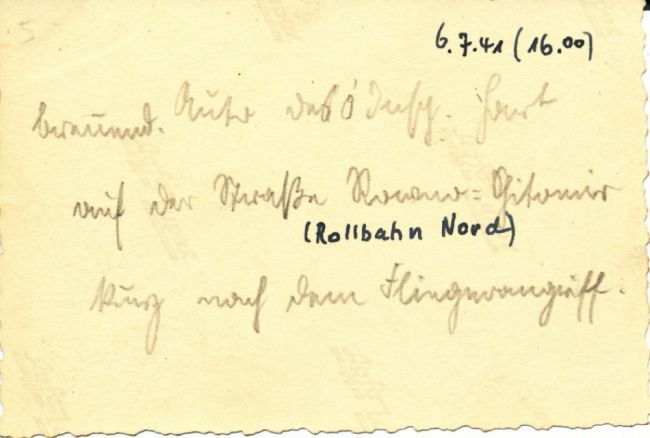 6.7.41 (16.00)
brennend. Auto des
auf der Straße Rowno=Shitomir
(Rollbahn Nord)
kurz nach dem Fliegerangriff.